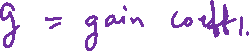 g = gain coefft.